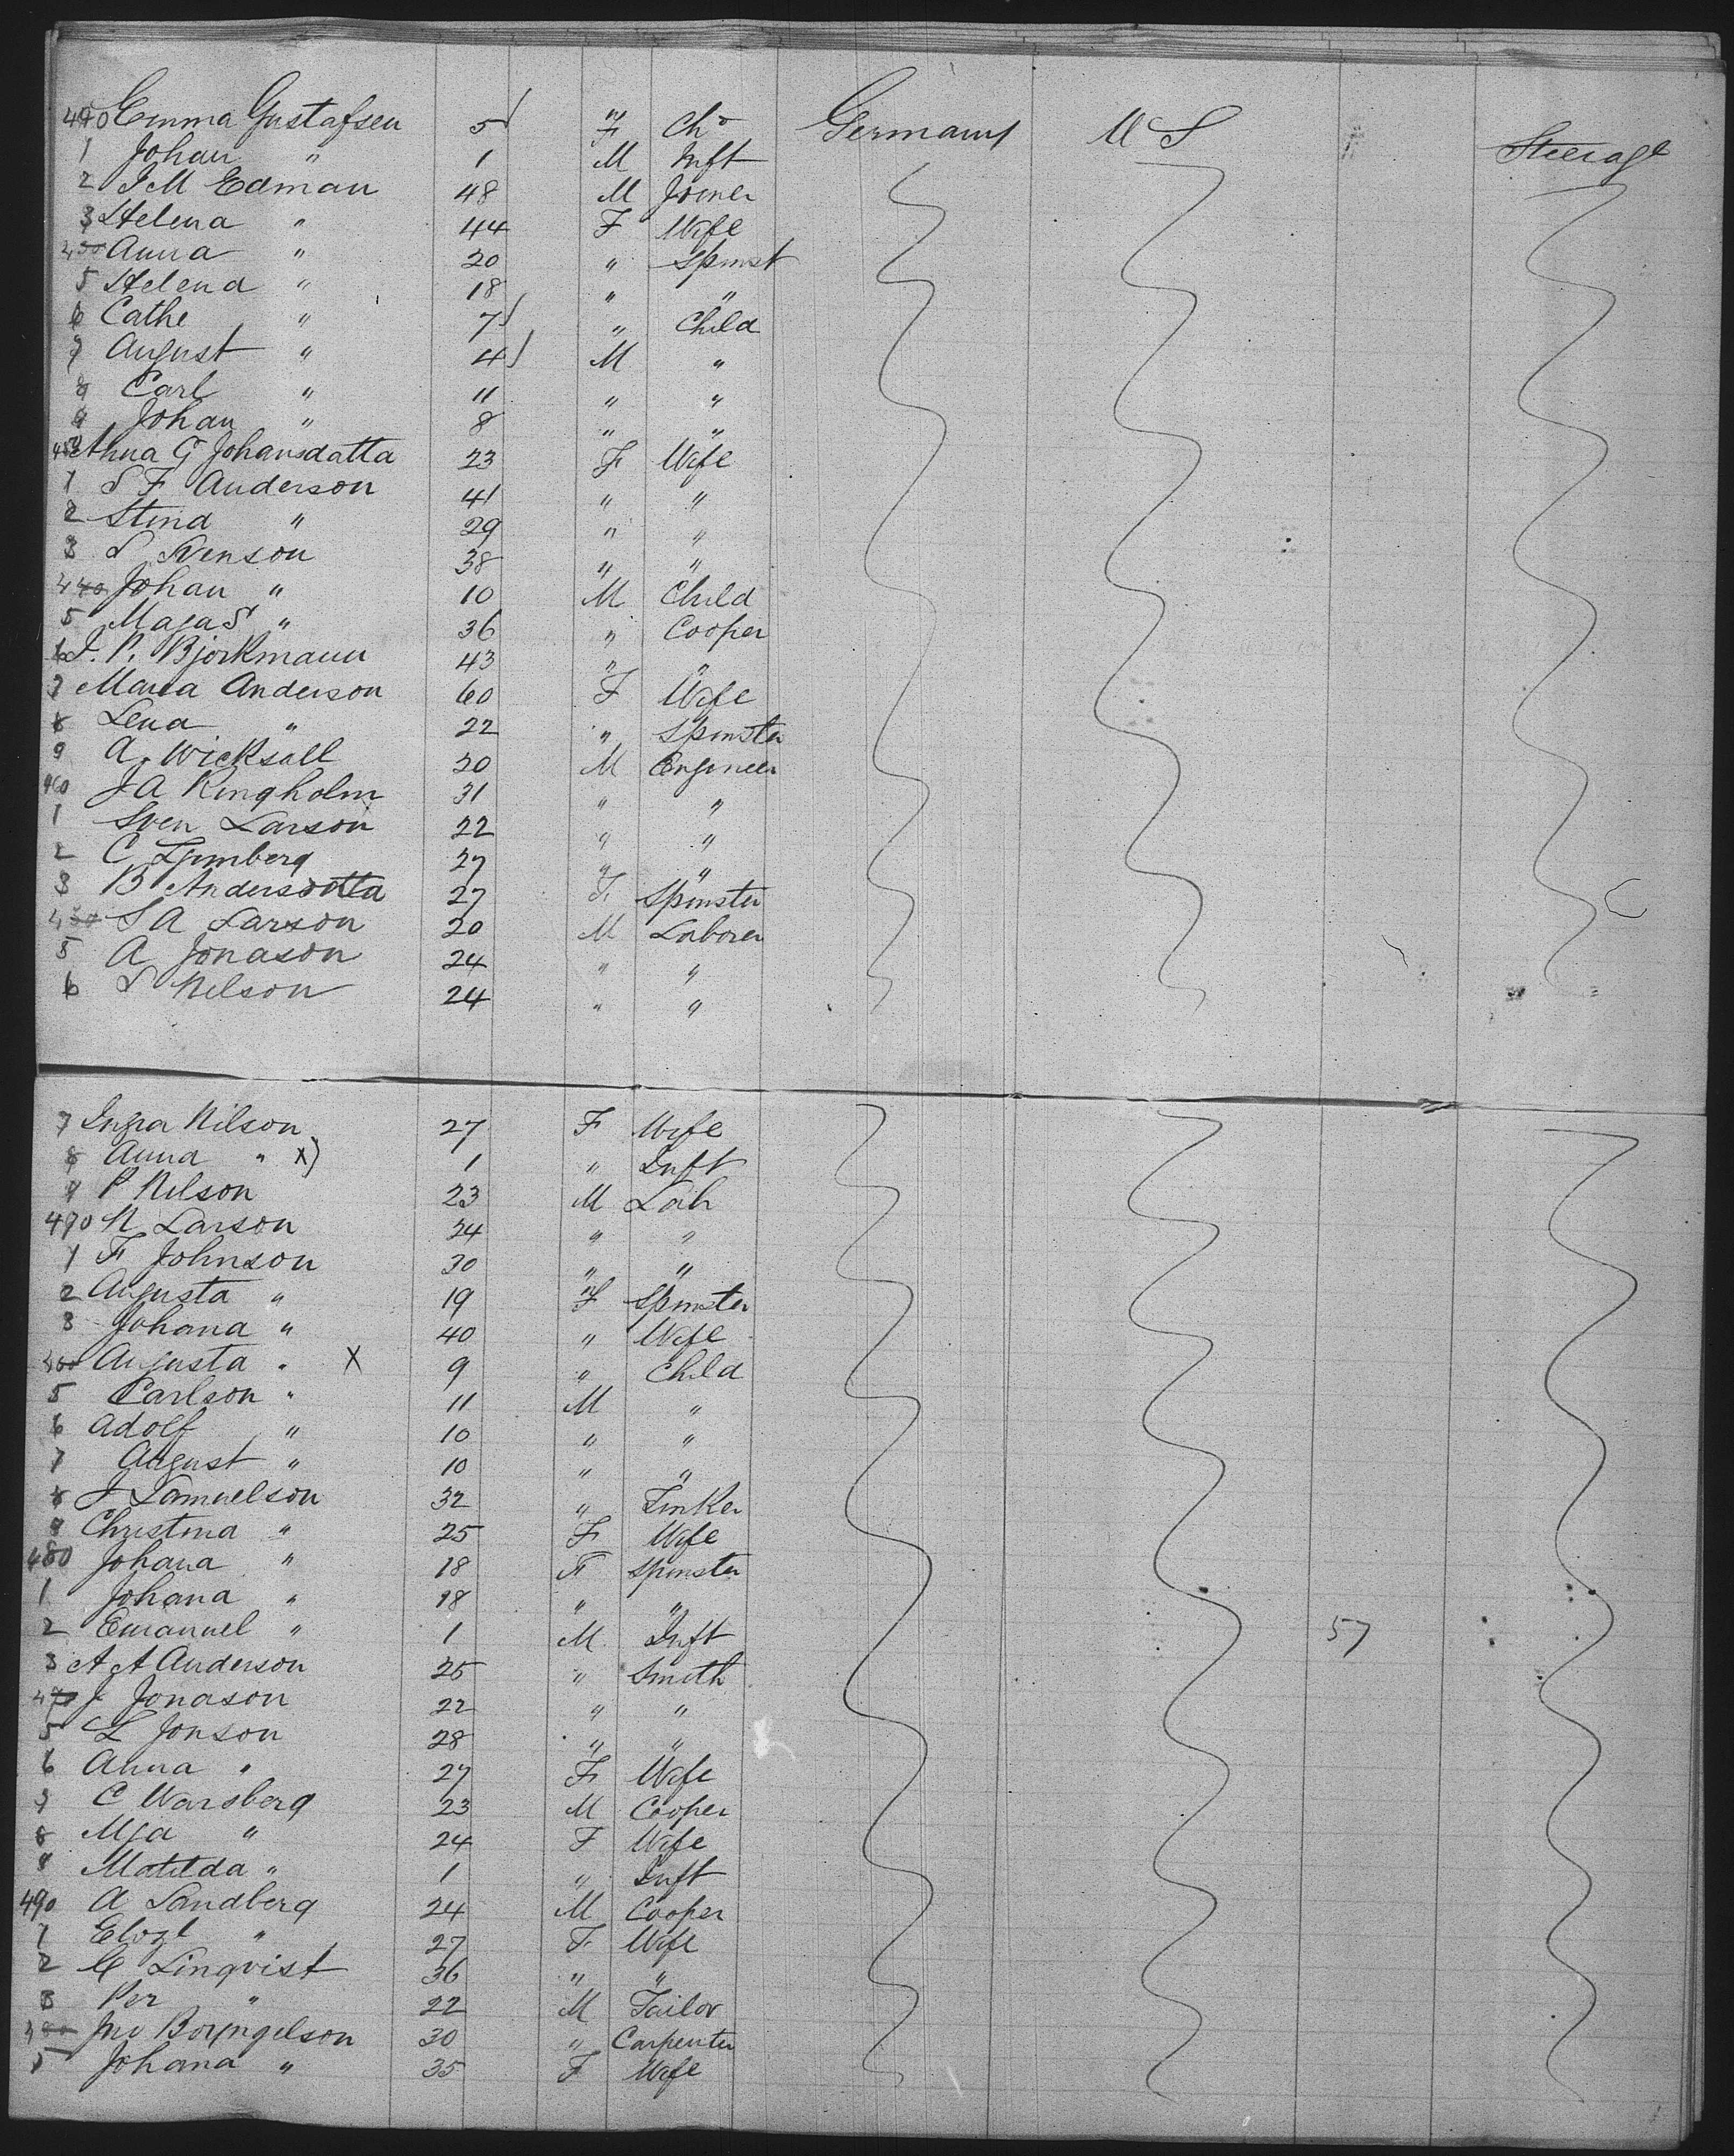 440 Emma Gustafsen 5 F Chd Germany U S Steerage
1 Johan " 1 M Inft
2 J M Edman 48 M Joiner
3 Helena " 44 F Wife
4 Anna " 20 " Spinst
5 Helena " 18 " "
6 Cathe " 7 " Child
7 August " 4 M "
8 Carl " 11 " "
9 Johan " 8 " "
Anna G Johansdatta 23 F Wife
1 S F Anderson 41 " "
2 Stina " 29 " "
3 S Svenson 38 " "
4 Johan " 10 M Child
5 Maja S " 36 " Cooper
6 J. P. Bjorkmann 43 " "
7 Maria Anderson 60 F Wife
8 Lena " 22 " Spinster
9 A. Wicksall 20 M Engineer
460 J A Ringholm 31 " "
1 Sven Larson 22 " "
2 C 27 " "
3 B Andersdotta 27 F Spinster
4 S A Larson 20 M Laborer
5 A Jonason 24 " "
6 S Nelson 24 " "
7 Inga Nilson 27 F Wife
8 Anna " X) 1 " Inft
9 P Nilson 23 M Lab
490 N Larson 24 " "
1 F Johnson 30 " "
2 Augusta " 19 F Spinster
3 Johana " 40 " Wife
Augusta " X 9 " Child
5 Carlson " 11 M "
6 Adolf " 10 " "
7 August " 10 " "
8 J Samuelson 32 " Tinker
9 Christina " 25 F Wife
480 Johana " 18 F Spinster
1 Johana " 18 " "
2 Emanuel " 1 M Inft 57
3 A A Anderson 25 " Smith
J Jonason 22 " "
5 L Jonson 28 " "
6 Anna " 27 F Wife
7 C Warsberg 23 M Cooper
8 Mja " 24 F Wife
9 Matilda " 1 " Inft
490 A Sandberg 24 M Cooper
1 " 27 F Wife
2 C Linqvist 36 " "
3 Per " 22 M Tailor
Jno 30 " Carpenter
5 Johana " 35 F Wife